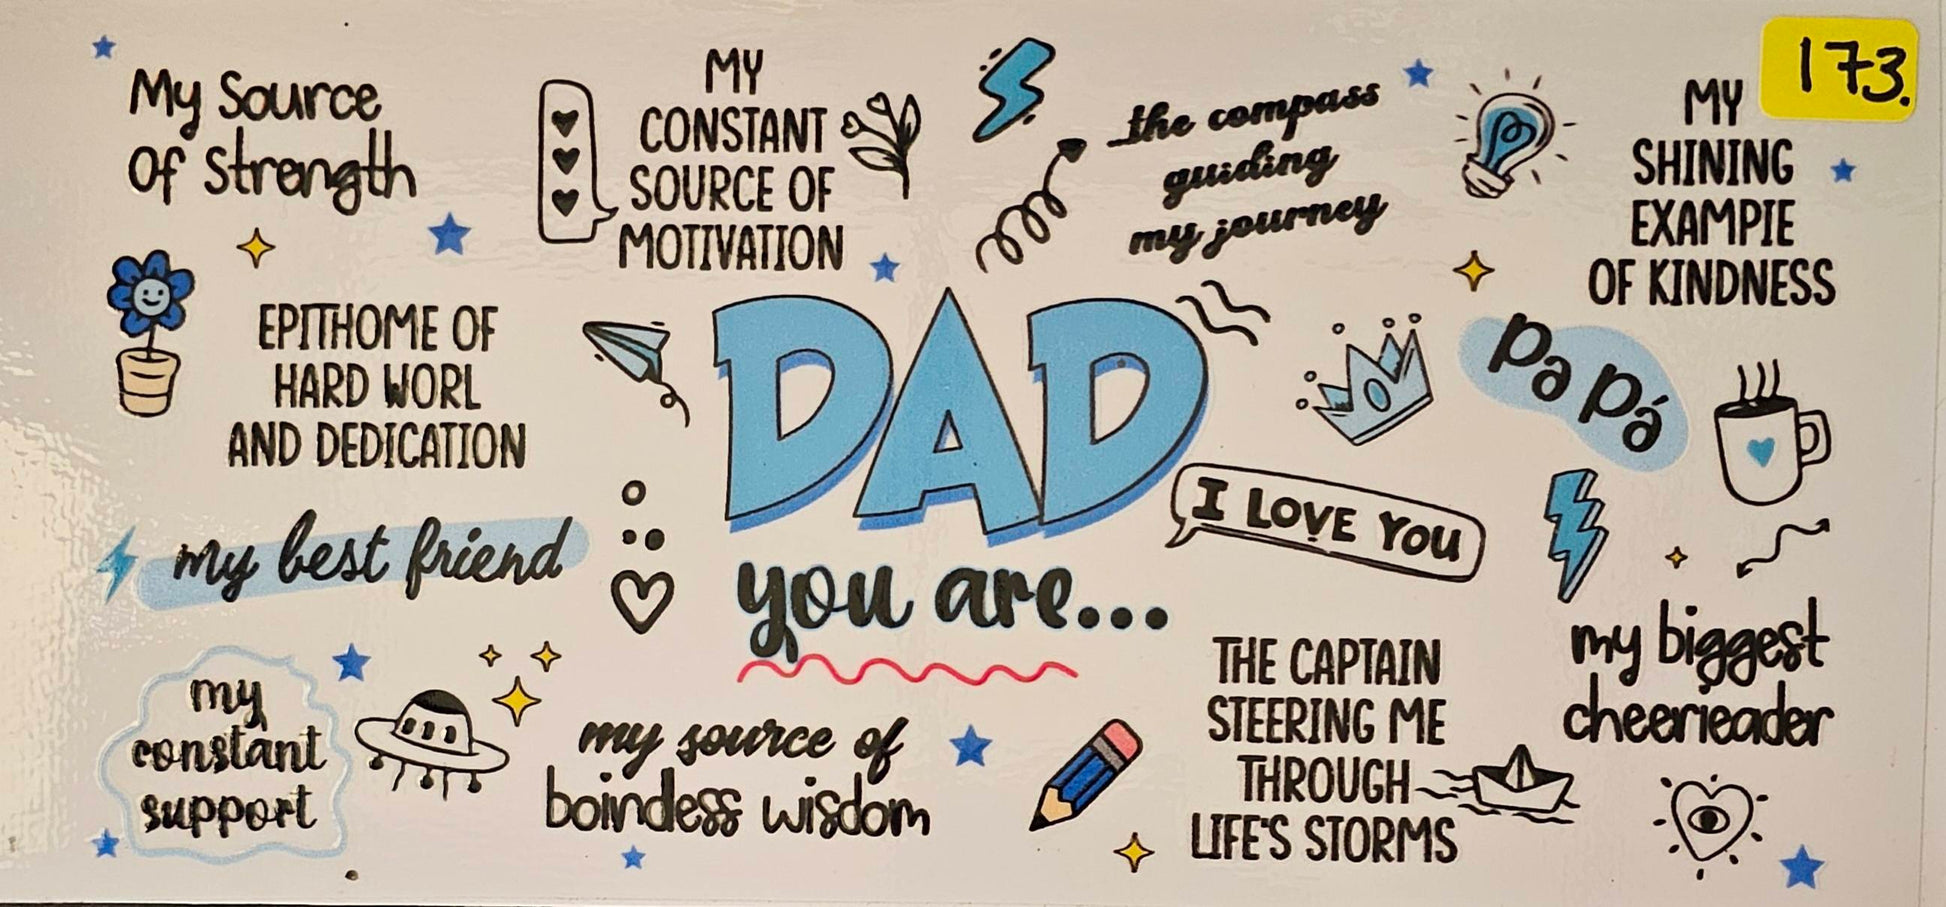 My Source
Of Strength
MY
CONSTANT
SOURCE OF
MOTIVATION
the compass
guiding
my journey
173.
MY
SHINING
EXAMPIE
OF KINDNESS
EPITHOME OF
HARD WORL
AND DEDICATION
DAD
you are...
Papá
I LOVE YOU
my best friend
my
constant
support
my source of
boindess wisdom
THE CAPTAIN
STEERING ME
THROUGH
LIFE'S STORMS
my biggest
cheerieader